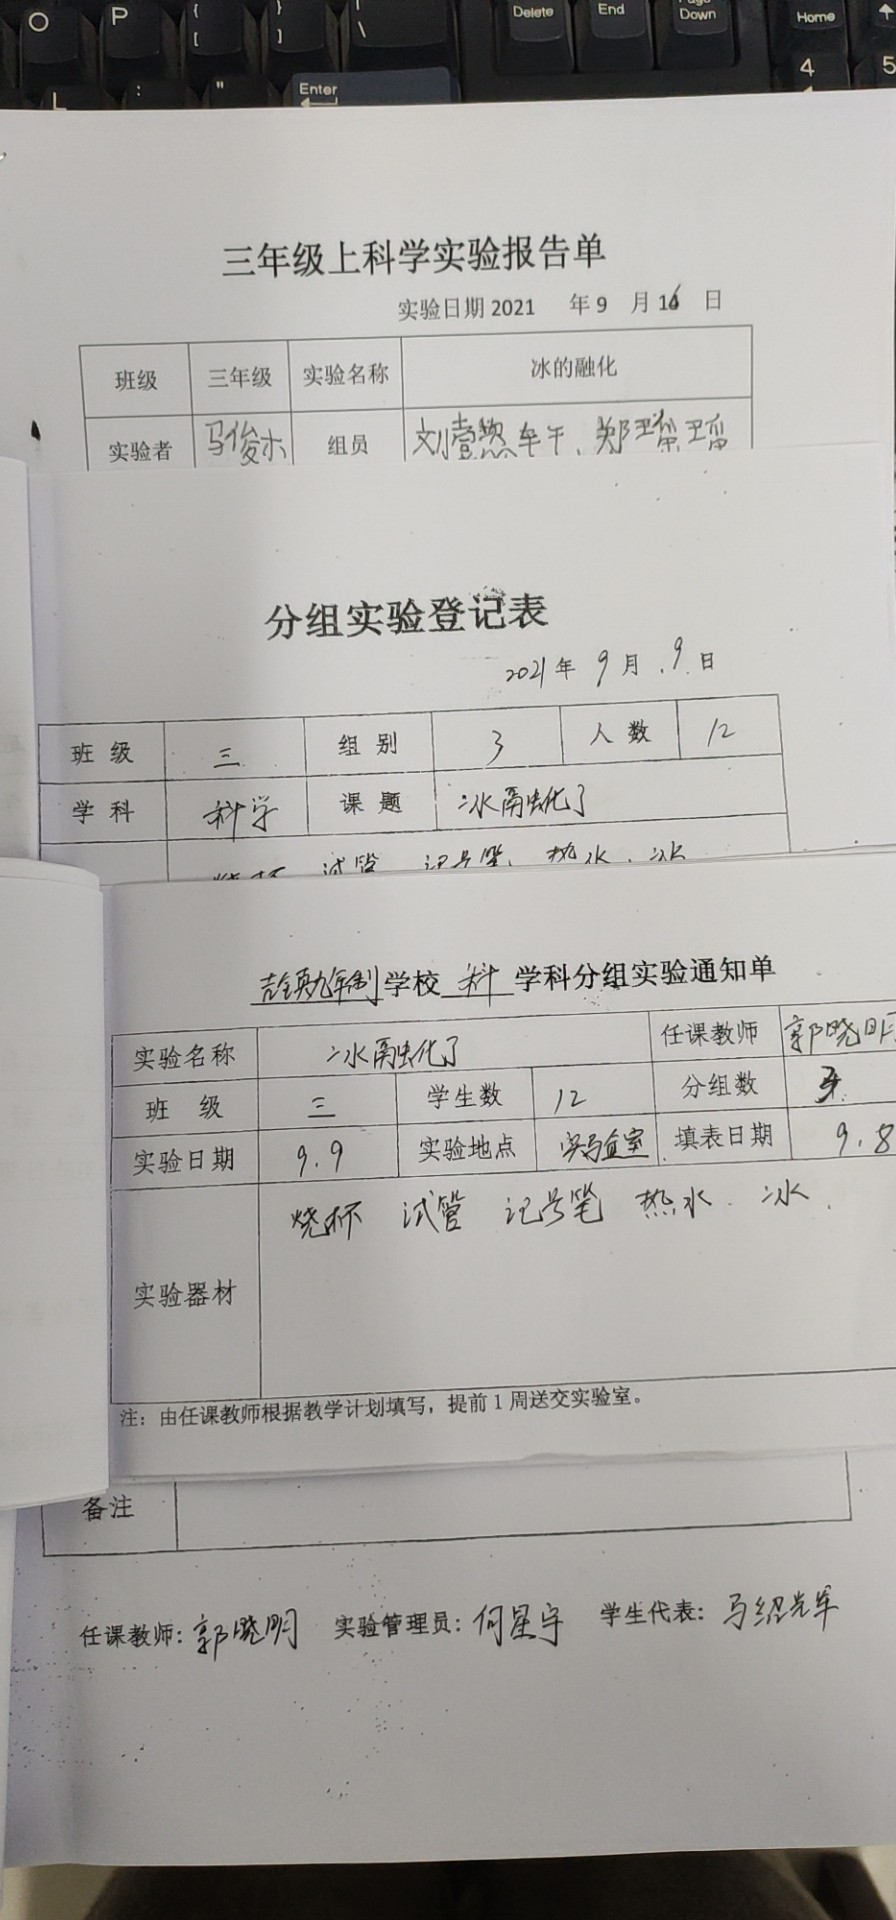 O P { [ } ] | \ Delete End Page Down Home
L : " Enter 4 5
三年级上科学实验报告单
实验日期 2021 年 9 月 日
班级 三年级 实验名称 冰的融化
实验者 马俊杰 组员
分组实验登记表
2021年 9月 9日
班级 三 组别 3 人数 12
学科 科学 课题 冰融化了
烧杯 试管 记号笔 热水 冰
学校 科 学科分组实验通知单
实验名称 冰融化了 任课教师 郭晓明
班级 三 学生数 12 分组数
实验日期 9.9 实验地点 实验室 填表日期 9.8
烧杯 试管 记号笔 热水 冰
实验器材
注：由任课教师根据教学计划填写，提前1周送交实验室。
备注
任课教师：郭晓明 实验管理员：何星宇 学生代表：马绍光军